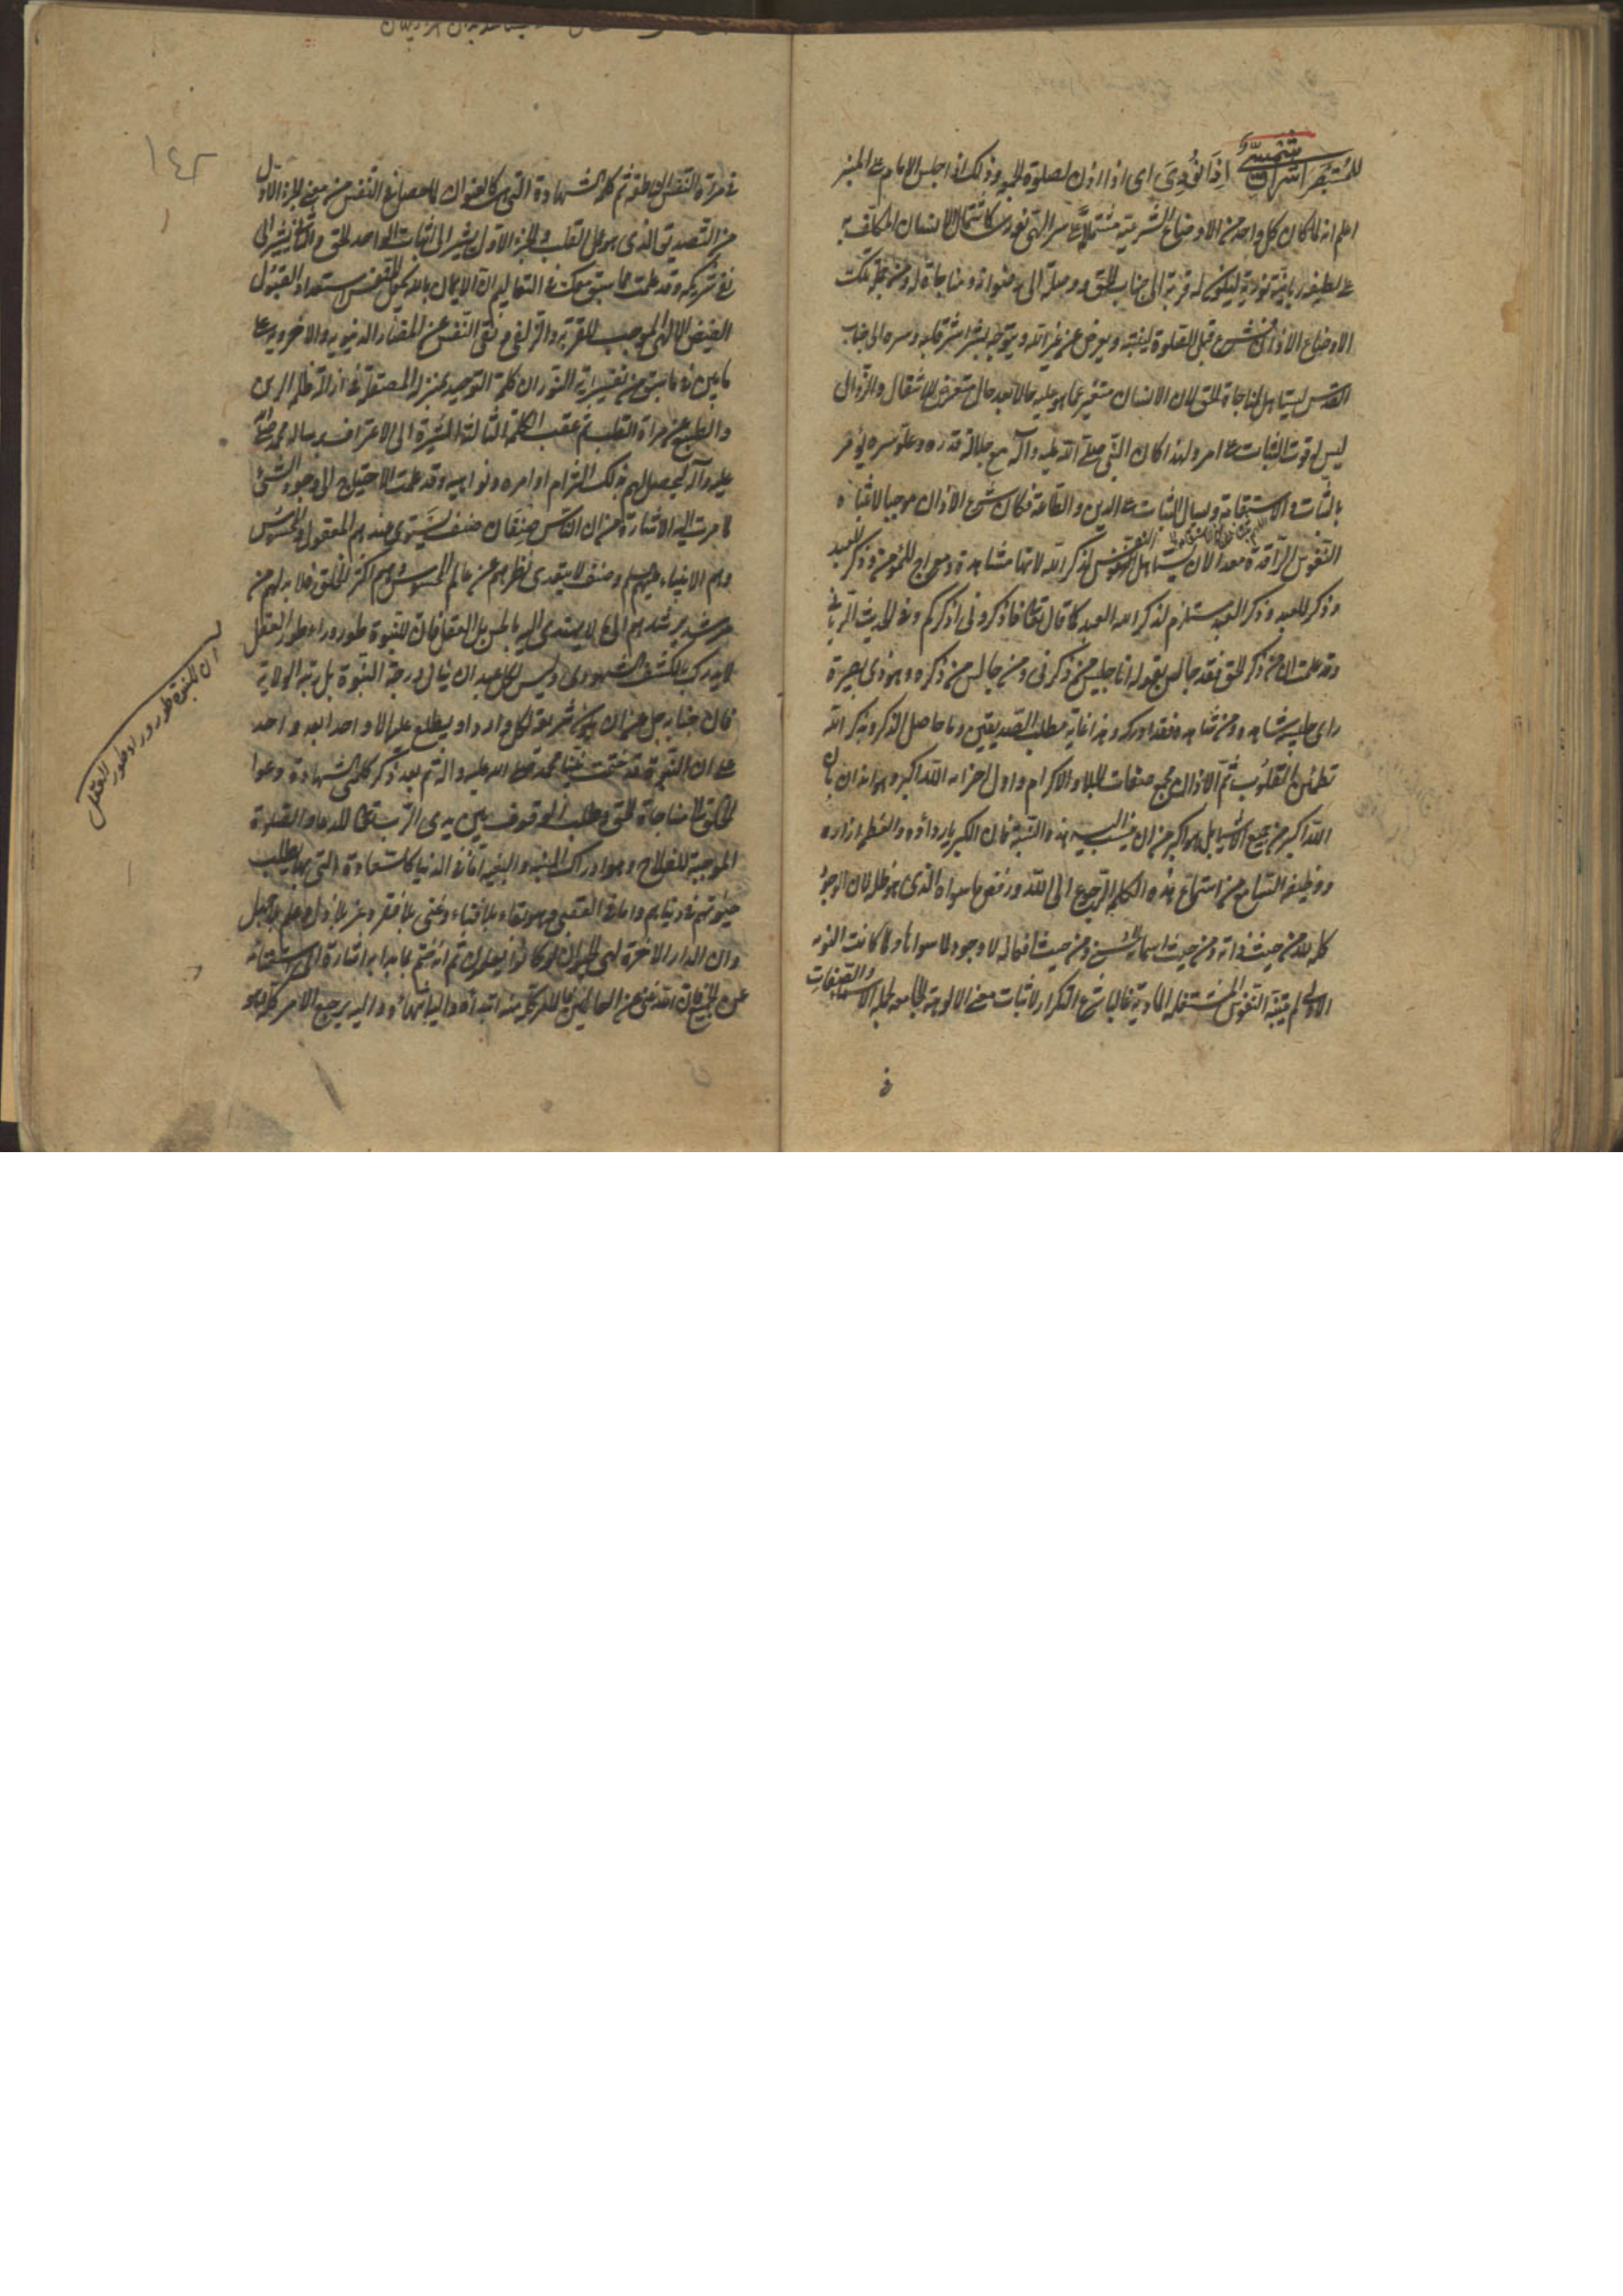 للمستبصر اشراق اذا نودى اى اذا اذن لصلوة الجمعة وذلك اذا جلس الامام على المنبر
اعلم انه لما كان كل واحد من الاوضاع الشرعية مشتملا على سر الهى نورى كاشتمال الانسان المكلف به
على لطيفة ربانية نورية ليكون له قربة الى جناب الحق ووصلة الى رضوانه ومناجاة له ومن جملة تلك
الاوضاع الاذان شرع قبل الصلوة لينتبه ويعرض عن غير الله ويتوجه بشراشر قلبه وسره الى جناب
القدس ليستاهل لمناجاة الحق لان الانسان متغير عما هو عليه حالا بعد حال متعرض للانتقال والزوال
ليس له قوت الثبات على امر ولهذا كان النبى صلى الله عليه وآله مع جلالة قدره وعلو سره يؤمر
بالثبات والاستقامة ويسال الثبات على الدين والطاعة فكان شرع الاذان موجبا لانتباه
النفوس الراقدة معدا لان يستاهل النفوس لذكر الله لانها مشاهدة ومعراج للمؤمن وذكر للعبد
وذكر للعبد وذكر العبد مستلزم لذكر الله العبد كما قال تعالى فاذكرونى اذكركم وفى الحديث الربانى
وقد علمت ان من ذكر الحق فقد جالس بقوله انا جليس من ذكرنى ومن جالس من ذكره وهو ذى بصيرة
راى جليسه شاهده ومن شاهده فقد ادركه وهذا غاية مطلب الصديقين وما حاصل الذكر وبذكر الله
تطمئن القلوب ثم الاذان مجمع صفات الجلال والاكرام واول اجزائه الله اكبر وهو ايذان بان
الله اكبر من جميع الاشياء بل هو اكبر من ان ينسب اليه هذه النسبة فان الكبرياء رداؤه والعظمة ازاره
ووظيفة السامع من استماع هذه الكلمة الرجوع الى الله ورفض ما سواه الذى هو ظل لان الوجود
كله لله من حيث ذاته ومن حيث اسمائه الحسنى ومن حيث افعاله لا وجود لما سواه ولما كانت
الاولى لم ينتبه النفوس المشتغلة غالبا شرع التكرار لاثبات معنى الالوهية الجامعة لجملة الاسماء والصفات
فى
١٤٢
فى مرآة النفس الناطقة ثم كلمة الشهادة التى هى كالعنوان لما حصل فى النفس من معنى الجزء الاول
من التصديق الذى هو عمل القلب فالجزء الاول يشير الى اثبات الواحد الحق والثانى يشير الى
نفى شريكه وقد علمت مما سبق معك فى التعاليم ان الايمان بالله يجعل للنفس استعداد القبول
الفيض الالهى الموجب للقربة والزلفى وتقى النفس عن المضار الدنيوية والاخروية على
ما بين فيما سبق من تفسير آية النور ان كلمة التوحيد بمنزلة المصقلة فى ازالة ظلمة الرين
والطبع عن مرآة القلب ثم عقب الكلمة الثالثة المشيرة الى الاعتراف برسالة محمد صلى الله
عليه وآله ليحصل لهم بذلك التزام اوامره ونواهيه وقد علمت الاحتياج الى وجود النبى
لما مرت اليه الاشارة من ان الناس صنفان صنف يستوى عندهم المعقول والمحسوس
وهم الانبياء عليهم السلم وصنف لا يتعدى نظرهم عن عالم المحسوس وهم اكثر الخلق فلا بد لهم من
مرشد يرشدهم الى ما لا يهتدى اليه بالحس بل العقل فان للنبوة طور وراء طور العقل
لا يدرك بالكشف الشهودى وليس لكل عبد ان ينال درجة النبوة بل رتبة الولاية
فان جنابه جل عن ان يكون شريعة لكل وارد او يطلع عليه الا واحد بعد واحد
على ان النبوة قد ختمت بنبينا محمد صلى الله عليه وآله ثم بعد ذكر كلمتى الشهادة دعوا
الخلق الى مناجاة الحق وطلب الوقوف بين يدى الرب تعالى للدعاء والصلوة
الموجبة للفلاح وهو ادراك المنية والبغية اما فى الدنيا كالسعادة التى بها يطلب
حيوتهم فى دنياهم واما فى العقبى وهو بقاء بلا فناء وغنى بلا فقر وعز بلا ذل وعلم بلا جهل
وان الدار الاخرة لهى الحيوان لو كانوا يعلمون ثم انه ختم بما بدا به اشارة الى استغنائه
عن الجميع فان الله غنى عن العالمين فالامر كله منه ابتداؤه واليه انتهاؤه واليه يرجع الامر كله
ان للنبوة طور وراء طور العقل